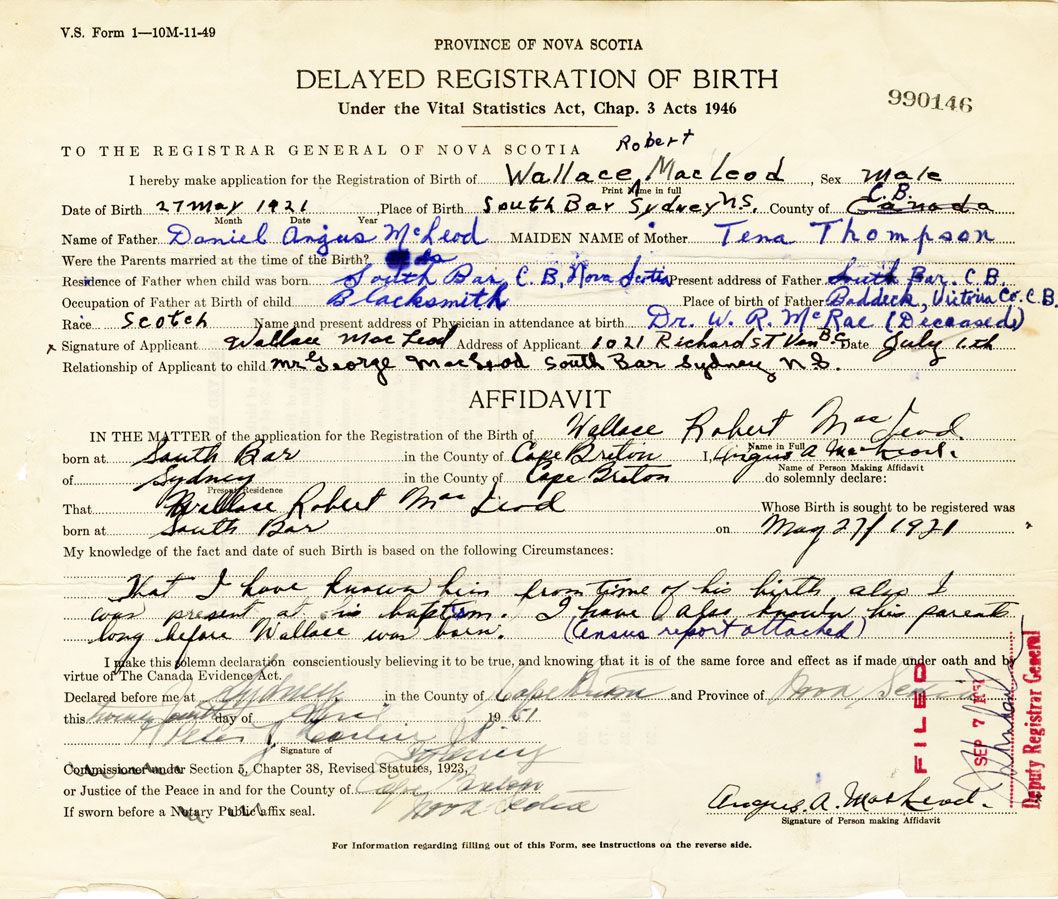 V.S. Form 1—10M-11-49
PROVINCE OF NOVA SCOTIA
DELAYED REGISTRATION OF BIRTH
Under the Vital Statistics Act, Chap. 3 Acts 1946
990146
TO THE REGISTRAR GENERAL OF NOVA SCOTIA
Robert
I hereby make application for the Registration of Birth of Wallace MacLeod, Sex Male
Print Name in full
C.B.
Date of Birth 27 May 1921 Place of Birth South Bar Sydney N.S. County of Canada
Month Date Year
Name of Father Daniel Angus McLeod MAIDEN NAME of Mother Tena Thompson
Were the Parents married at the time of the Birth?
Residence of Father when child was born South Bar, C.B, Nova Scotia Present address of Father South Bar. C.B.
Occupation of Father at Birth of child Blacksmith Place of birth of Father Baddeck, Victoria Co. C.B.
Race Scotch Name and present address of Physician in attendance at birth Dr. W. R. McRae (Deceased)
x Signature of Applicant Wallace MacLeod Address of Applicant 1021 Richard St Van B.C. Date July 6th
Relationship of Applicant to child Mr George MacLeod South Bar Sydney N.S.
AFFIDAVIT
IN THE MATTER of the application for the Registration of the Birth of Wallace Robert MacLeod
Name in Full
born at South Bar in the County of Cape Breton I, Angus A MacLeod.
Name of Person Making Affidavit
of Sydney in the County of Cape Breton do solemnly declare:
Present Residence
That Wallace Robert MacLeod Whose Birth is sought to be registered was
born at South Bar on May 27/1921
My knowledge of the fact and date of such Birth is based on the following Circumstances:
That I have known him from time of his birth also I
was present at his baptism. I have also known his parents
long before Wallace was born. (Census report attached)
I make this solemn declaration conscientiously believing it to be true, and knowing that it is of the same force and effect as if made under oath and by
virtue of The Canada Evidence Act.
Declared before me at Sydney in the County of Cape Breton and Province of Nova Scotia
this day of 1951
Peter
Signature of
Sydney
Commissioner under Section 5, Chapter 38, Revised Statutes, 1923,
or Justice of the Peace in and for the County of Cape Breton
Nova Scotia
If sworn before a Notary Public affix seal.
Angus. A. MacLeod.
Signature of Person making Affidavit
FILED
SEP 7 1951
Deputy Registrar General
For Information regarding filling out of this Form, see instructions on the reverse side.